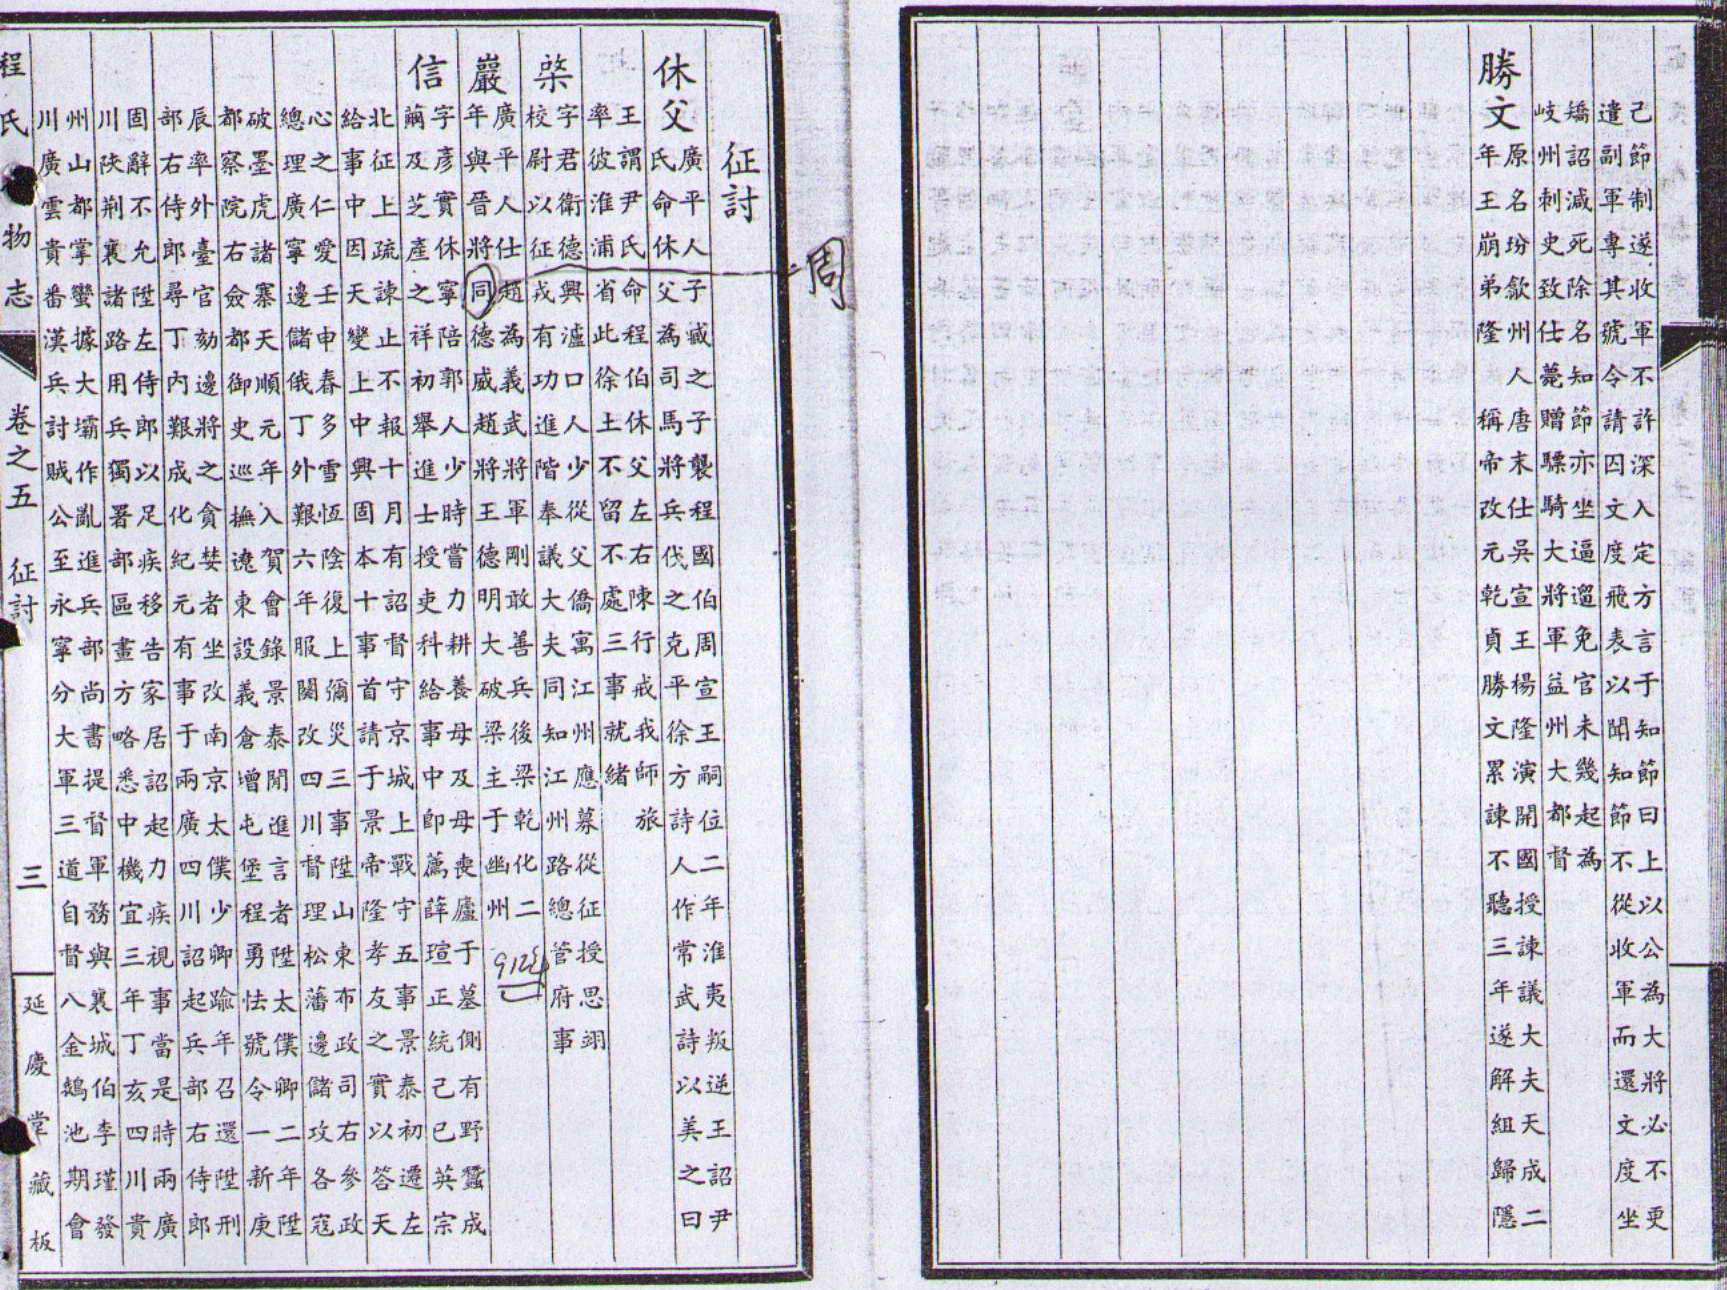 己節制遂收軍不許深入定方言于知節曰上以公為大將必不更
遣副軍專其號令請囚文度飛表以聞知節不從收軍而還文度坐
矯詔減死除名知節亦坐逼遛免官未幾起為
岐州刺史致仕薨贈驃騎大將軍益州大都督
勝文
原名坋歙州人唐末仕吳宣王楊隆演開國授諫議大夫天成二
年王崩弟隆稱帝改元乾貞勝文累諫不聽三年遂解組歸隱
周
征討
休父
廣平人子臧之子襲程國伯周宣王嗣位二年淮夷叛逆王詔尹
氏命休父為司馬將兵伐之克平徐方詩人作常武詩以美之曰
王謂尹氏命程伯休父左右陳行戒我師旅
率彼淮浦省此徐土不留不處三事就緒
棨
字君衛德興瀘口人少從父僑寓江州應募從征授思翊
校尉以征戎有功進階奉議大夫同知江州路總管府事
巖
廣平人仕趙為義武將軍剛敢善兵後梁乾化二
年與晉將同德威趙將王德明大破梁主于幽州
912년
信
字彥實休寧陪郭人少時嘗力耕養母及母喪廬于墓側有野蠶成
繭及芝產之祥初舉進士授吏科給事中卽薦薛瑄正統己巳英宗
北征上疏諫止不報十月有詔督守京城上戰守五事景泰初遷左
給事中因天變上中興固本十事首請于景帝隆孝友之實以答天
心之仁愛壬申春多雪恆陰復上彌災三事陞山東布政司右參政
總理廣寧邊儲俄丁外艱六年服闋改四川督理松藩邊儲攻各寇
破墨虎諸寨天順元年入賀會錄景泰閒進言者陞太僕卿二年陞
都察院右僉都御史巡撫遼東設義倉增屯堡程勇怯號令一新庚
辰率外臺官劾邊將之貪婪者坐改南京太僕少卿踰年召還陞刑
部右侍郎尋丁內艱成化紀元有事于兩廣四川詔起兵部右侍郎
固辭不允陞左侍郎以足疾移告家居詔起力疾視事當是時兩廣
川陝荆襄諸路用兵獨署部區畫方略悉中機宜三年丁亥四川貴
州山都掌蠻據大壩作亂進兵部尚書提督軍務與襄城伯李瑾發
川廣雲貴番漢兵討賊公至永寧分大軍三道自督八金鵝池期會
程氏 物志 卷之五 征討 三 延慶堂藏板